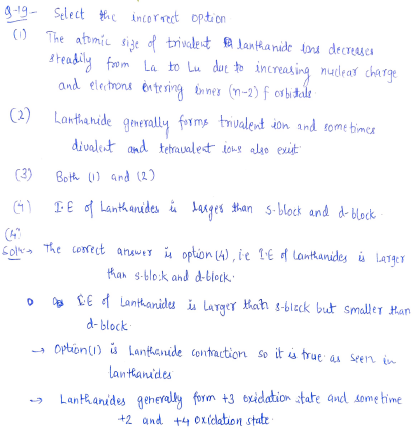 Q-19- Select the incorrect option
(1) The atomic size of trivalent lanthanide ions decreases
steadily from La to Lu due to increasing nuclear charge
and electrons entering inner (n-2) f orbitals.
(2) Lanthanide generally forms trivalent ion and sometimes
divalent and tetravalent ions also exist
(3) Both (1) and (2)
(4) I·E of Lanthanides is larger than s-block and d-block.
(4)
Sol:→ The correct answer is option (4), i.e I·E of Lanthanides is Larger
than s-block and d-block.
I·E of Lanthanides is Larger than s-block but smaller than
d-block.
→ Option (1) is Lanthanide contraction so it is true as seen in
lanthanides
→ Lanthanides generally form +3 oxidation state and sometime
+2 and +4 oxidation state.